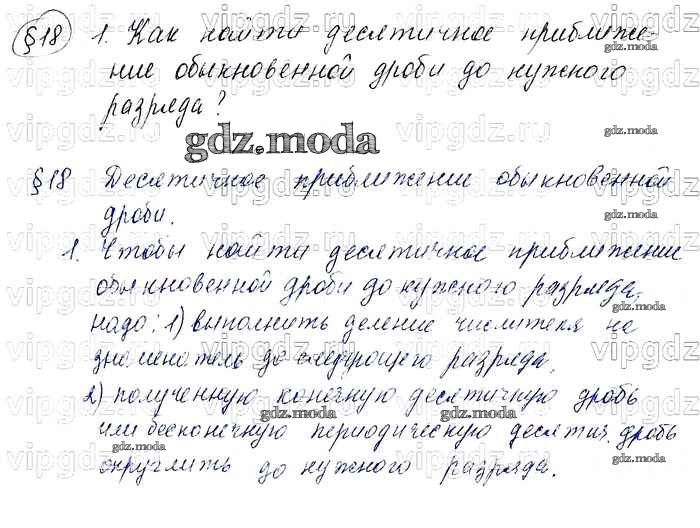 §18 1. Как найти десятичное приближе-
ние обыкновенной дроби до нужного
разряда?
gdz.moda
§18 Десятичное приближении обыкновенной
дроби.
1. Чтобы найти десятичное приближении
обыкновенной дроби до нужного разряда,
надо: 1) выполнить деление числителя на
знаменатель до следующего разряда,
2) полученную конечную десятичную дробь
или бесконечную периодическую десятич. дробь
округлить до нужного разряда.